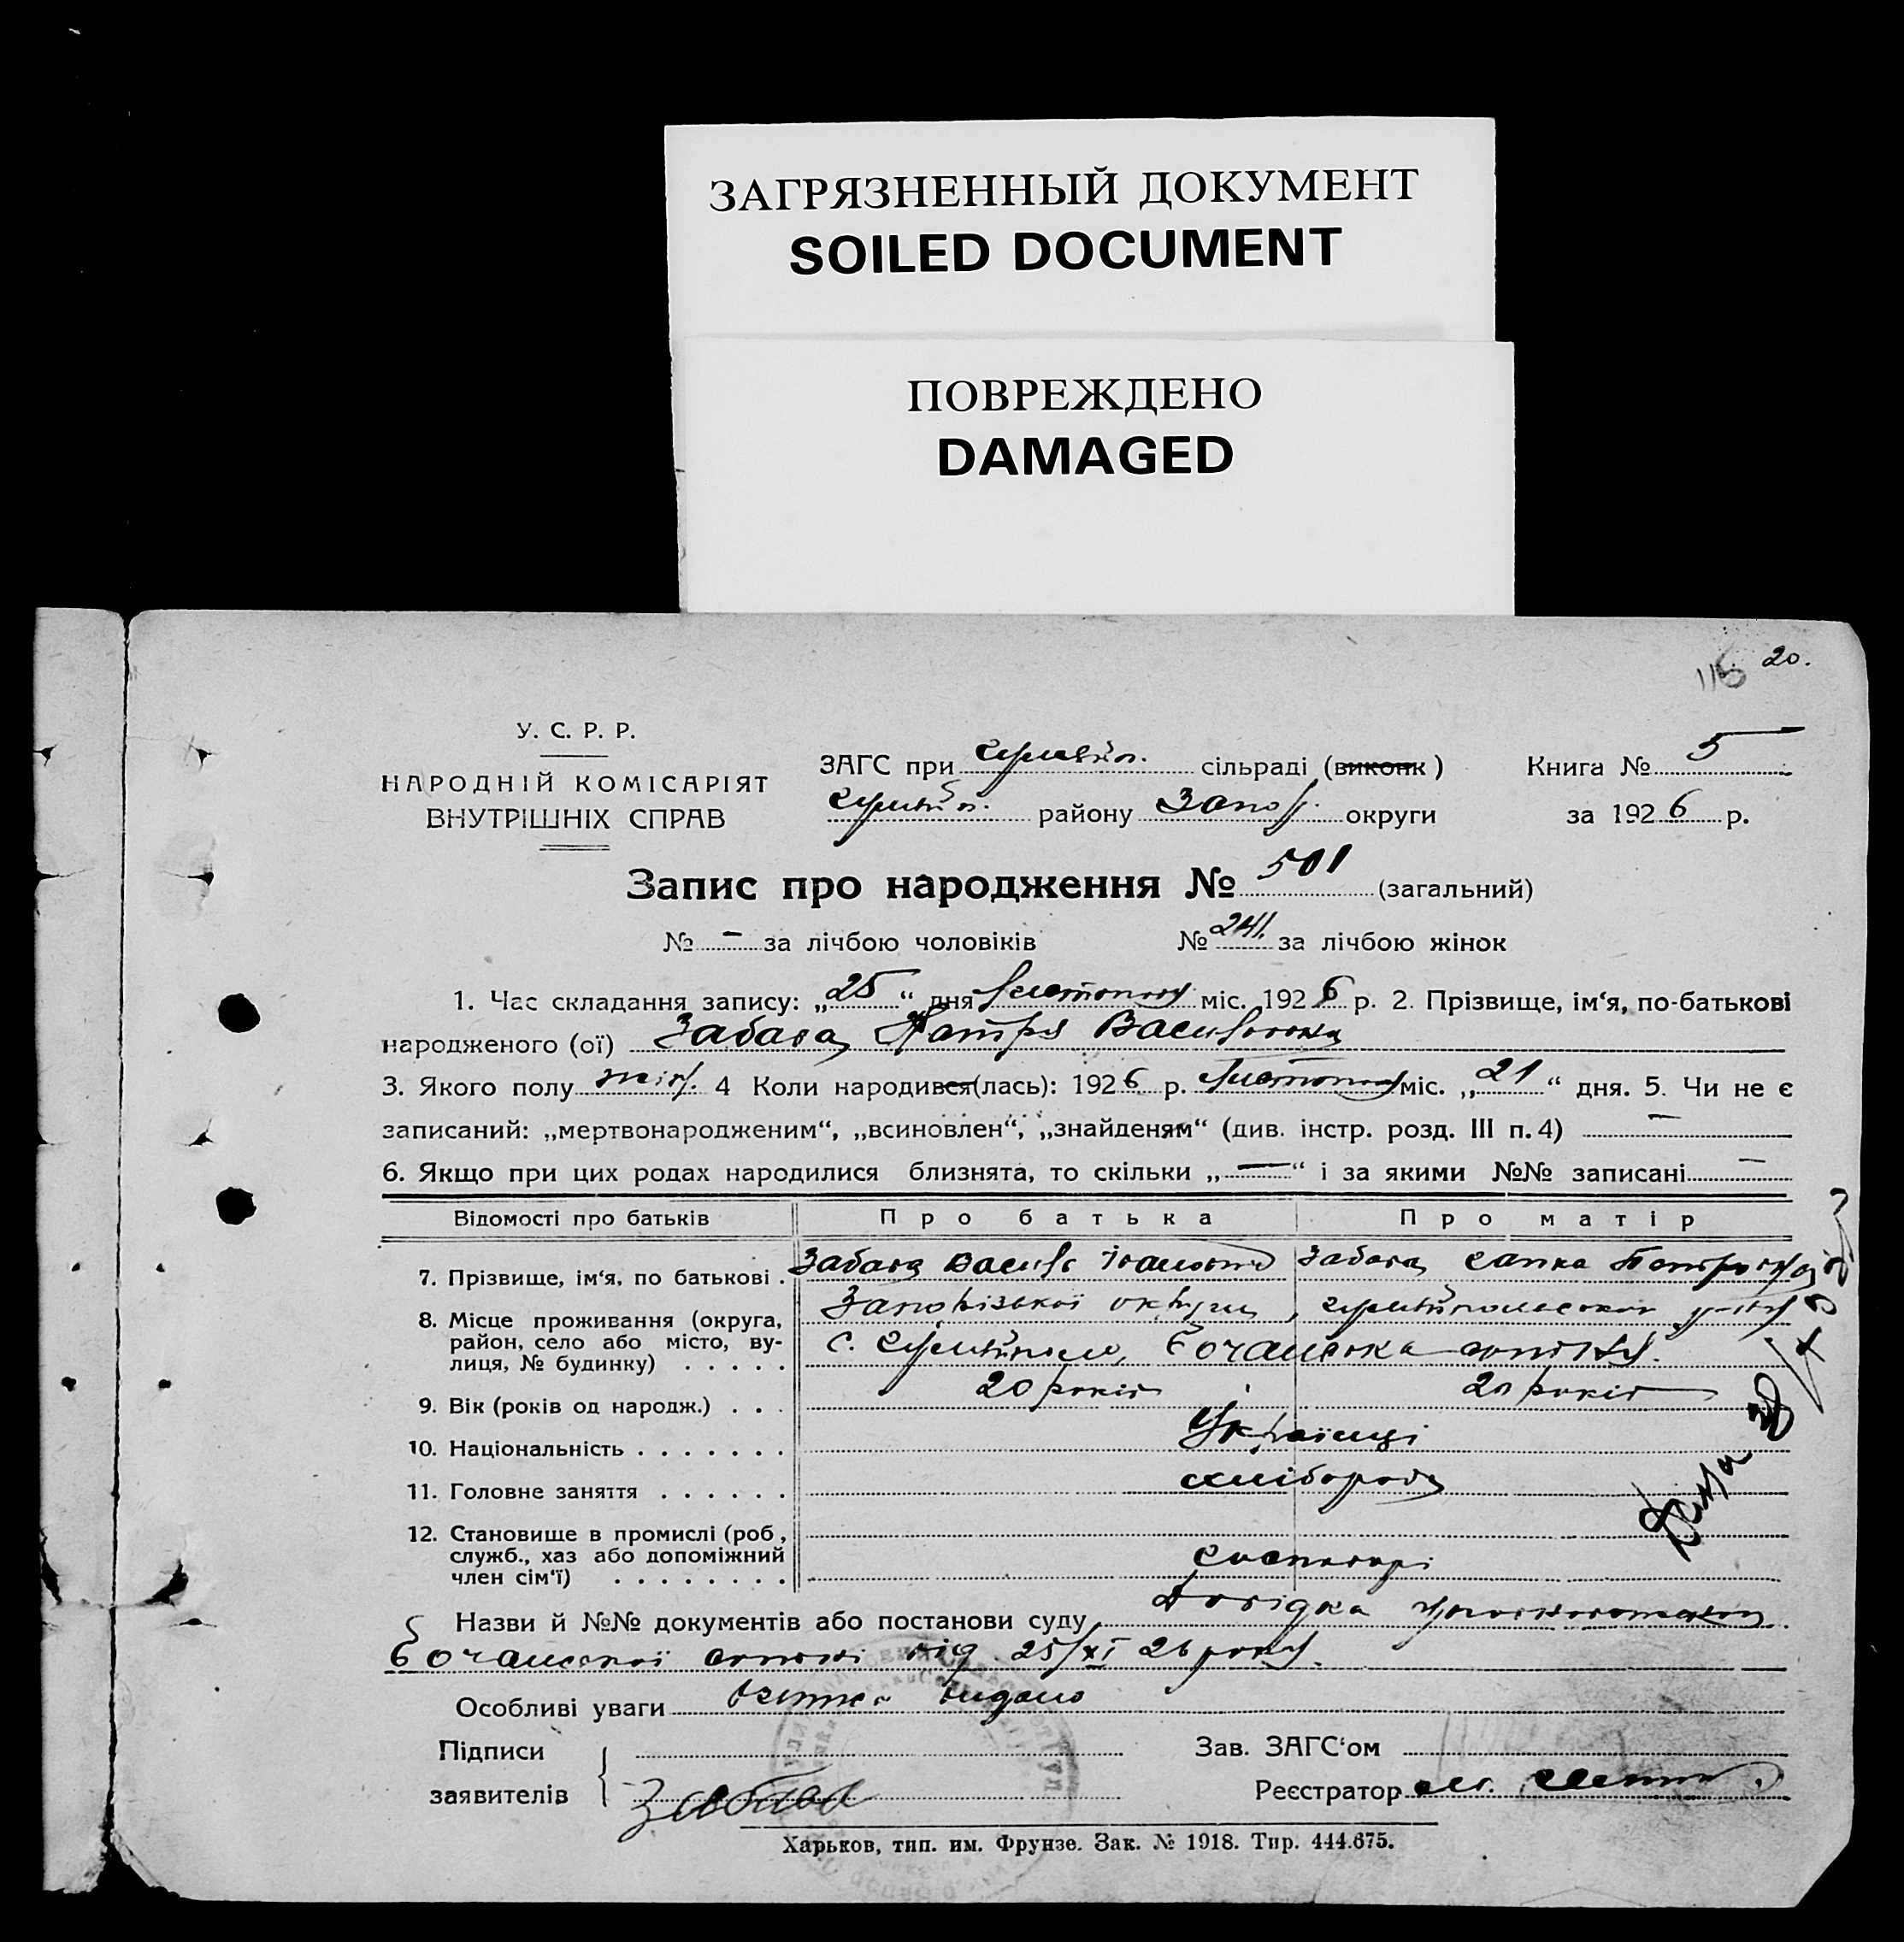 ЗАГРЯЗНЕННЫЙ ДОКУМЕНТ
SOILED DOCUMENT
ПОВРЕЖДЕНО
DAMAGED
20.
У. С. Р. Р.
НАРОДНІЙ КОМІСАРІЯТ
ВНУТРІШНІХ СПРАВ
ЗАГС при сільраді (виконк)
району Запор. округи
Книга № 5
за 1926 р.
Запис про народження № 501 (загальний)
№ — за лічбою чоловіків № 241. за лічбою жінок
1. Час складання запису: „25“ дня Листопада міс. 1926 р. 2. Прізвище, ім‘я, по-батькові
народженого (ої) Забава Василівна
3. Якого полу жін. 4 Коли народився(лась): 1926 р. Листопада міс. „21“ дня. 5. Чи не є
записаний: „мертвонародженим“, „всиновлен“, „знайденям“ (див. інстр. розд. III п. 4) —
6. Якщо при цих родах народилися близнята, то скільки „—“ і за якими №№ записані —
Відомості про батьків Про батька Про матір
7. Прізвище, ім‘я, по батькові . Забава Василь Іванович Забава
8. Місце проживання (округа, район, село або місто, вулиця, № будинку) . . . . . Запорізької округи,
с.
9. Вік (років од народж.) . . . 20 років 20 років
10. Національність . . . . . . . Українці
11. Головне заняття . . . . . . хлібороби
12. Становище в промислі (роб, служб., хаз або допоміжний член сім‘ї) . . . . . . . . господарі
Назви й №№ документів або постанови суду Довідка
від 25/XI 26 року.
Особливі уваги видано
Підписи
заявителів Забава
Зав. ЗАГС‘ом
Реєстратор
Харьков, тип. им. Фрунзе. Зак. № 1918. Тир. 444.675.